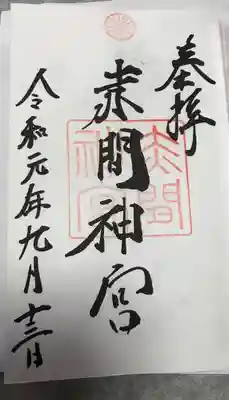 奉拝
赤間神宮
赤間
神宮
令和元年九月十三日